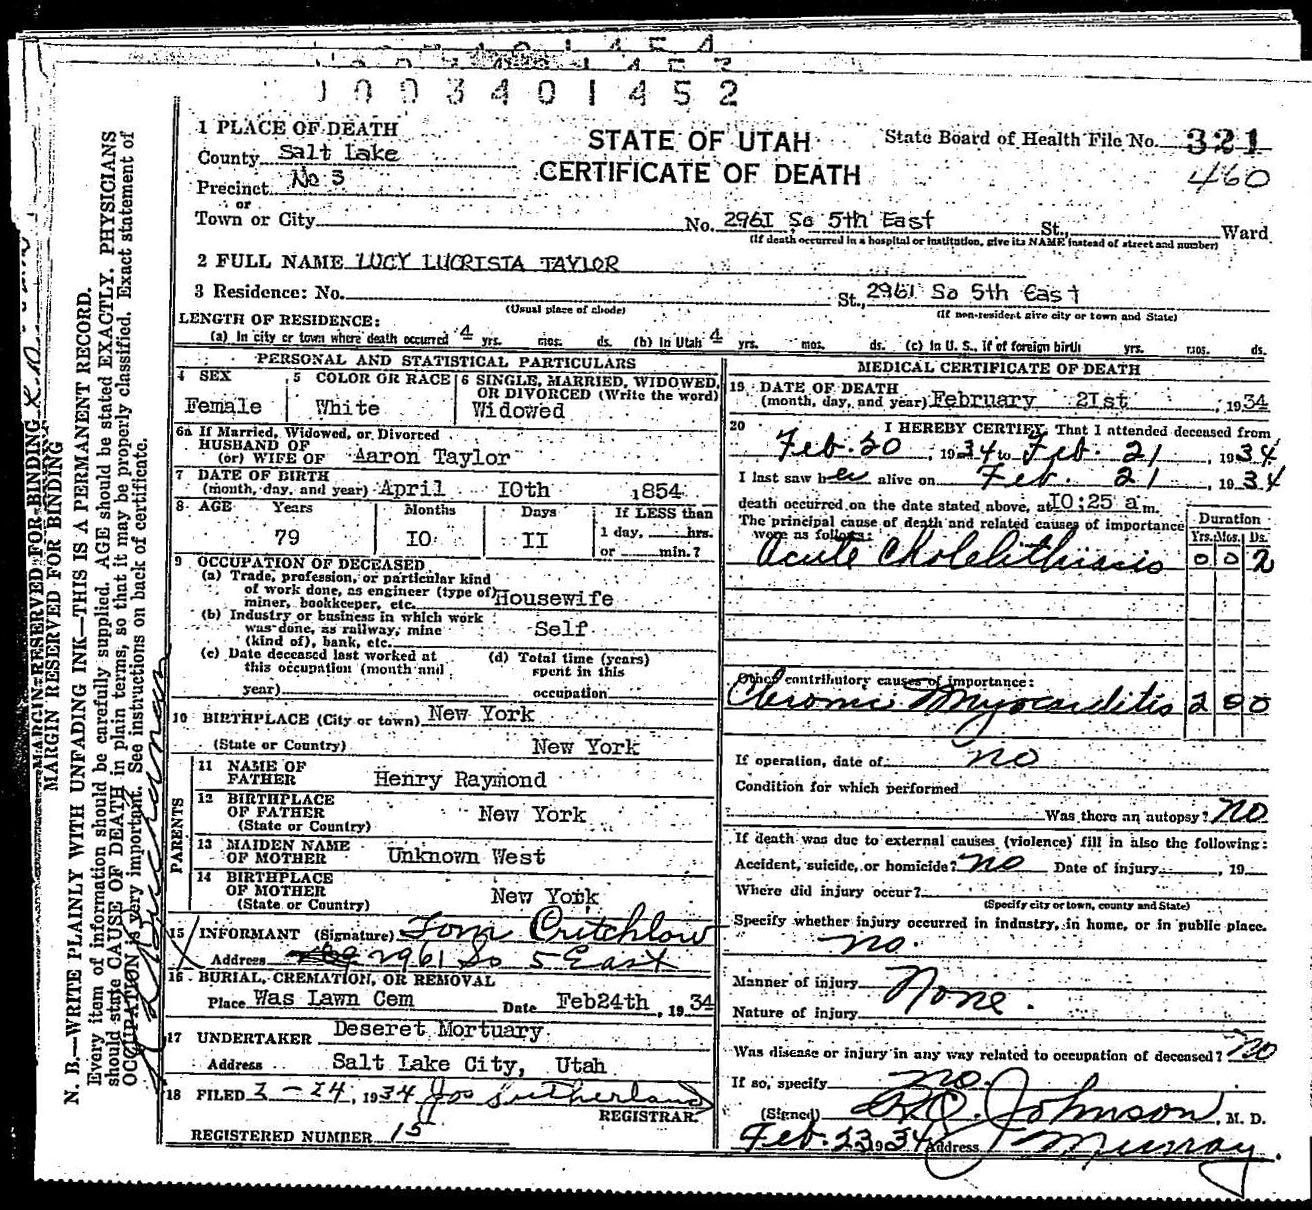 1003401452
1 PLACE OF DEATH
County Salt Lake
Precinct No 3
or
Town or City
STATE OF UTAH
CERTIFICATE OF DEATH
State Board of Health File No. 321
460
No. 2961 So 5th East St., Ward
(If death occurred in a hospital or institution, give its NAME instead of street and number)
2 FULL NAME LUCY LUCRISTA TAYLOR
3 Residence: No. St., 2961 So 5th East
(Usual place of abode) (If non-resident give city or town and State)
LENGTH OF RESIDENCE:
(a) In city or town where death occurred 4 yrs. mos. ds. (b) In Utah 4 yrs. mos. ds. (c) In U. S., if of foreign birth yrs. mos. ds.
PERSONAL AND STATISTICAL PARTICULARS
4 SEX
Female
5 COLOR OR RACE
White
6 SINGLE, MARRIED, WIDOWED,
OR DIVORCED (Write the word)
Widowed
6a If Married, Widowed, or Divorced
HUSBAND OF
(or) WIFE OF Aaron Taylor
7 DATE OF BIRTH
(month, day, and year) April 10th 1854
8 AGE Years Months Days If LESS than
79 IO II 1 day, hrs.
or min.?
9 OCCUPATION OF DECEASED
(a) Trade, profession, or particular kind
of work done, as engineer (type of)
miner, bookkeeper, etc. Housewife
(b) Industry or business in which work
was done, as railway, mine
(kind of), bank, etc. Self
(c) Date deceased last worked at
this occupation (month and
year)
(d) Total time (years)
spent in this
occupation
10 BIRTHPLACE (City or town) New York
(State or Country) New York
PARENTS
11 NAME OF
FATHER Henry Raymond
12 BIRTHPLACE
OF FATHER New York
(State or Country)
13 MAIDEN NAME
OF MOTHER Unknown West
14 BIRTHPLACE
OF MOTHER New York
(State or Country)
15 INFORMANT (Signature) Tom Critchlow
Address 2961 So 5 East
16 BURIAL, CREMATION, OR REMOVAL
Place Was Lawn Cem Date Feb24th, 1934
17 UNDERTAKER Deseret Mortuary
Address Salt Lake City, Utah
18 FILED 2-24, 1934 Jos Sutherland
REGISTRAR
REGISTERED NUMBER 15
MEDICAL CERTIFICATE OF DEATH
19 DATE OF DEATH
(month, day, and year) February 2Ist, 1934
20 I HEREBY CERTIFY, That I attended deceased from
Feb. 20, 1934 to Feb. 21, 1934
I last saw her alive on Feb. 21, 1934
death occurred on the date stated above, at IO;25 a m.
The principal cause of death and related causes of importance
were as follows:
Duration
Yrs. Mos. Ds.
Acute Cholelithiasis 0 0 2
Other contributory causes of importance:
Chronic Myocarditis 2 0 0
If operation, date of no
Condition for which performed
Was there an autopsy? no
If death was due to external causes (violence) fill in also the following:
Accident, suicide, or homicide? no Date of injury , 19
Where did injury occur?
(Specify city or town, county and State)
Specify whether injury occurred in industry, in home, or in public place.
no.
Manner of injury None.
Nature of injury
Was disease or injury in any way related to occupation of deceased? no
If so, specify no.
(Signed) Johnson, M. D.
Feb. 23 1934 Address Murray.
MARGIN RESERVED FOR BINDING
MARGIN RESERVED FOR BINDING
N. B.—WRITE PLAINLY WITH UNFADING INK—THIS IS A PERMANENT RECORD.
Every item of information should be carefully supplied. AGE should be stated EXACTLY. PHYSICIANS
should state CAUSE OF DEATH in plain terms, so that it may be properly classified. Exact statement of
OCCUPATION is very important. See instructions on back of certificate.